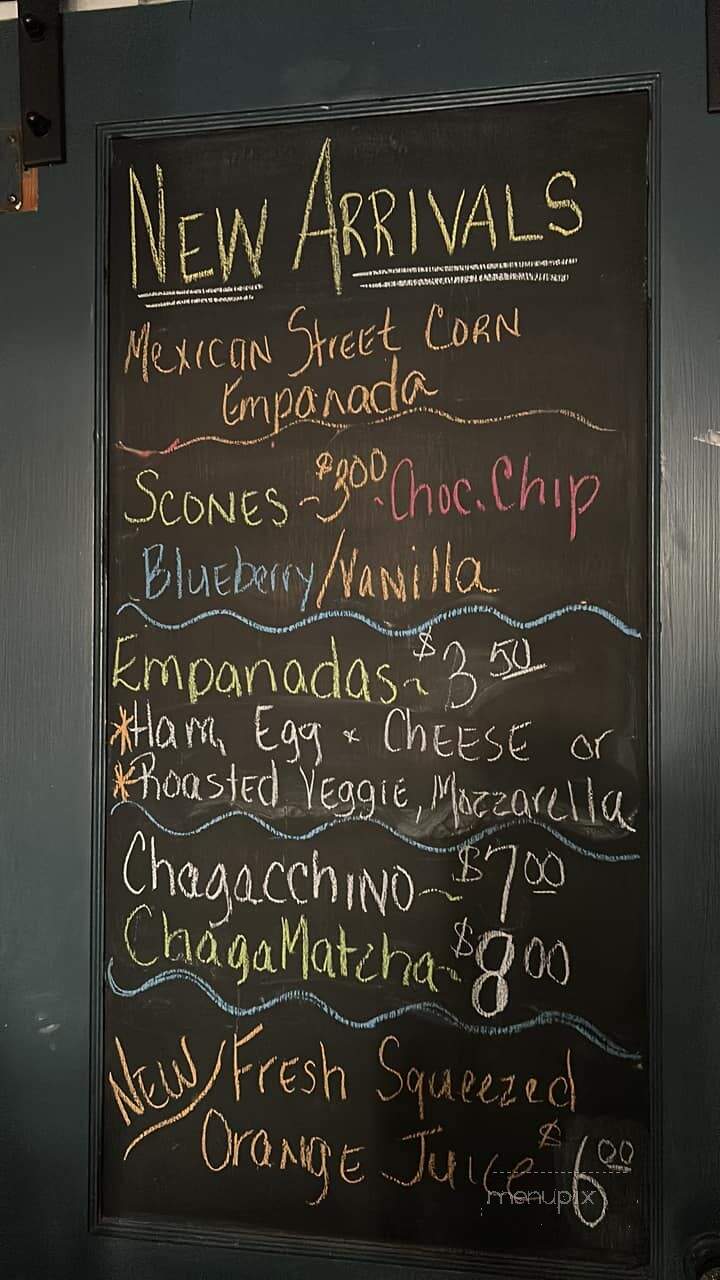 NEW ARRIVALS
Mexican Street Corn
Empanada
Scones ~ $3.00 ~ Choc. Chip
Blueberry/Vanilla
Empanadas ~ $3.50
*Ham, Egg & Cheese or
*Roasted Veggie, Mozzarella
Chagacchino ~ $7.00
ChagaMatcha ~ $8.00
NEW/Fresh Squeezed
Orange Juice $6.00
menupix